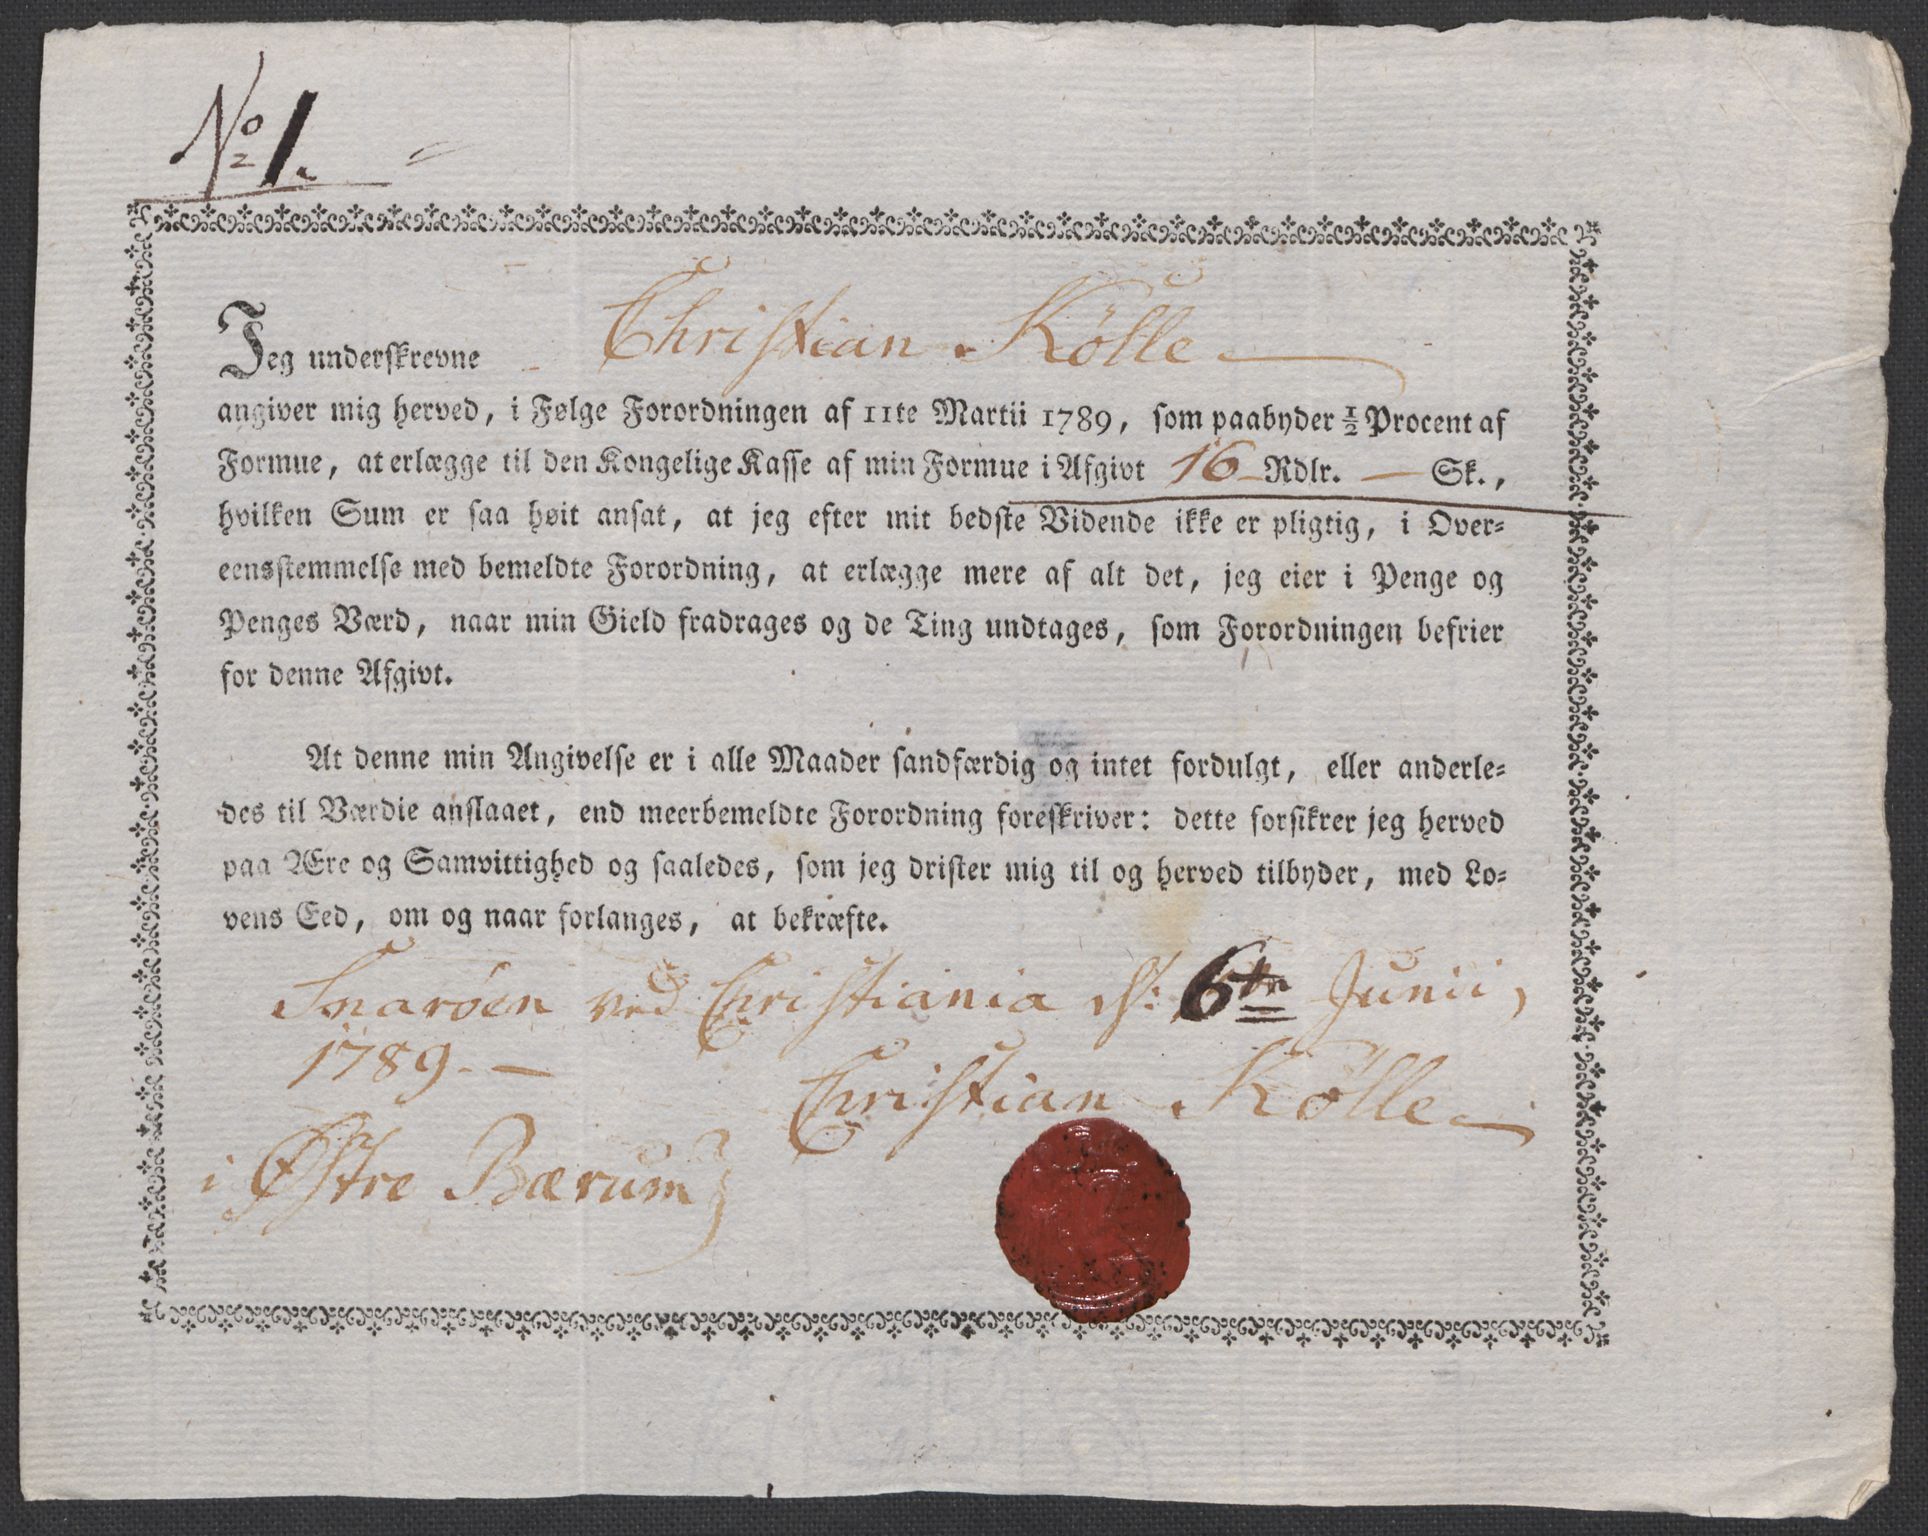 No 1.
Jeg underskrevne Christian Kölle
angiver mig herved, i Følge Forordningen af 11te Martii 1789, som paabyder ½ Procent af
Formue, at erlægge til den Kongelige Kasse af min Formue i Afgivt 16 Rdlr. — Sk.,
hvilken Sum er saa høit ansat, at jeg efter mit bedste Vidende ikke er pligtig, i Over-
eensstemmelse med bemeldte Forordning, at erlægge mere af alt det, jeg eier i Penge og
Penges Værd, naar min Gield fradrages og de Ting undtages, som Forordningen befrier
for denne Afgivt.
At denne min Angivelse er i alle Maader sandfærdig og intet fordulgt, eller anderle-
des til Værdie anslaaet, end meerbemeldte Forordning foreskriver: dette forsikrer jeg herved
paa Ære og Samvittighed og saaledes, som jeg drister mig til og herved tilbyder, med Lo-
vens Eed, om og naar forlanges, at bekræfte.
Snaröen ved Christiania d: 6te Junii,
1789. —
Christian Kölle
i Østre Bærum